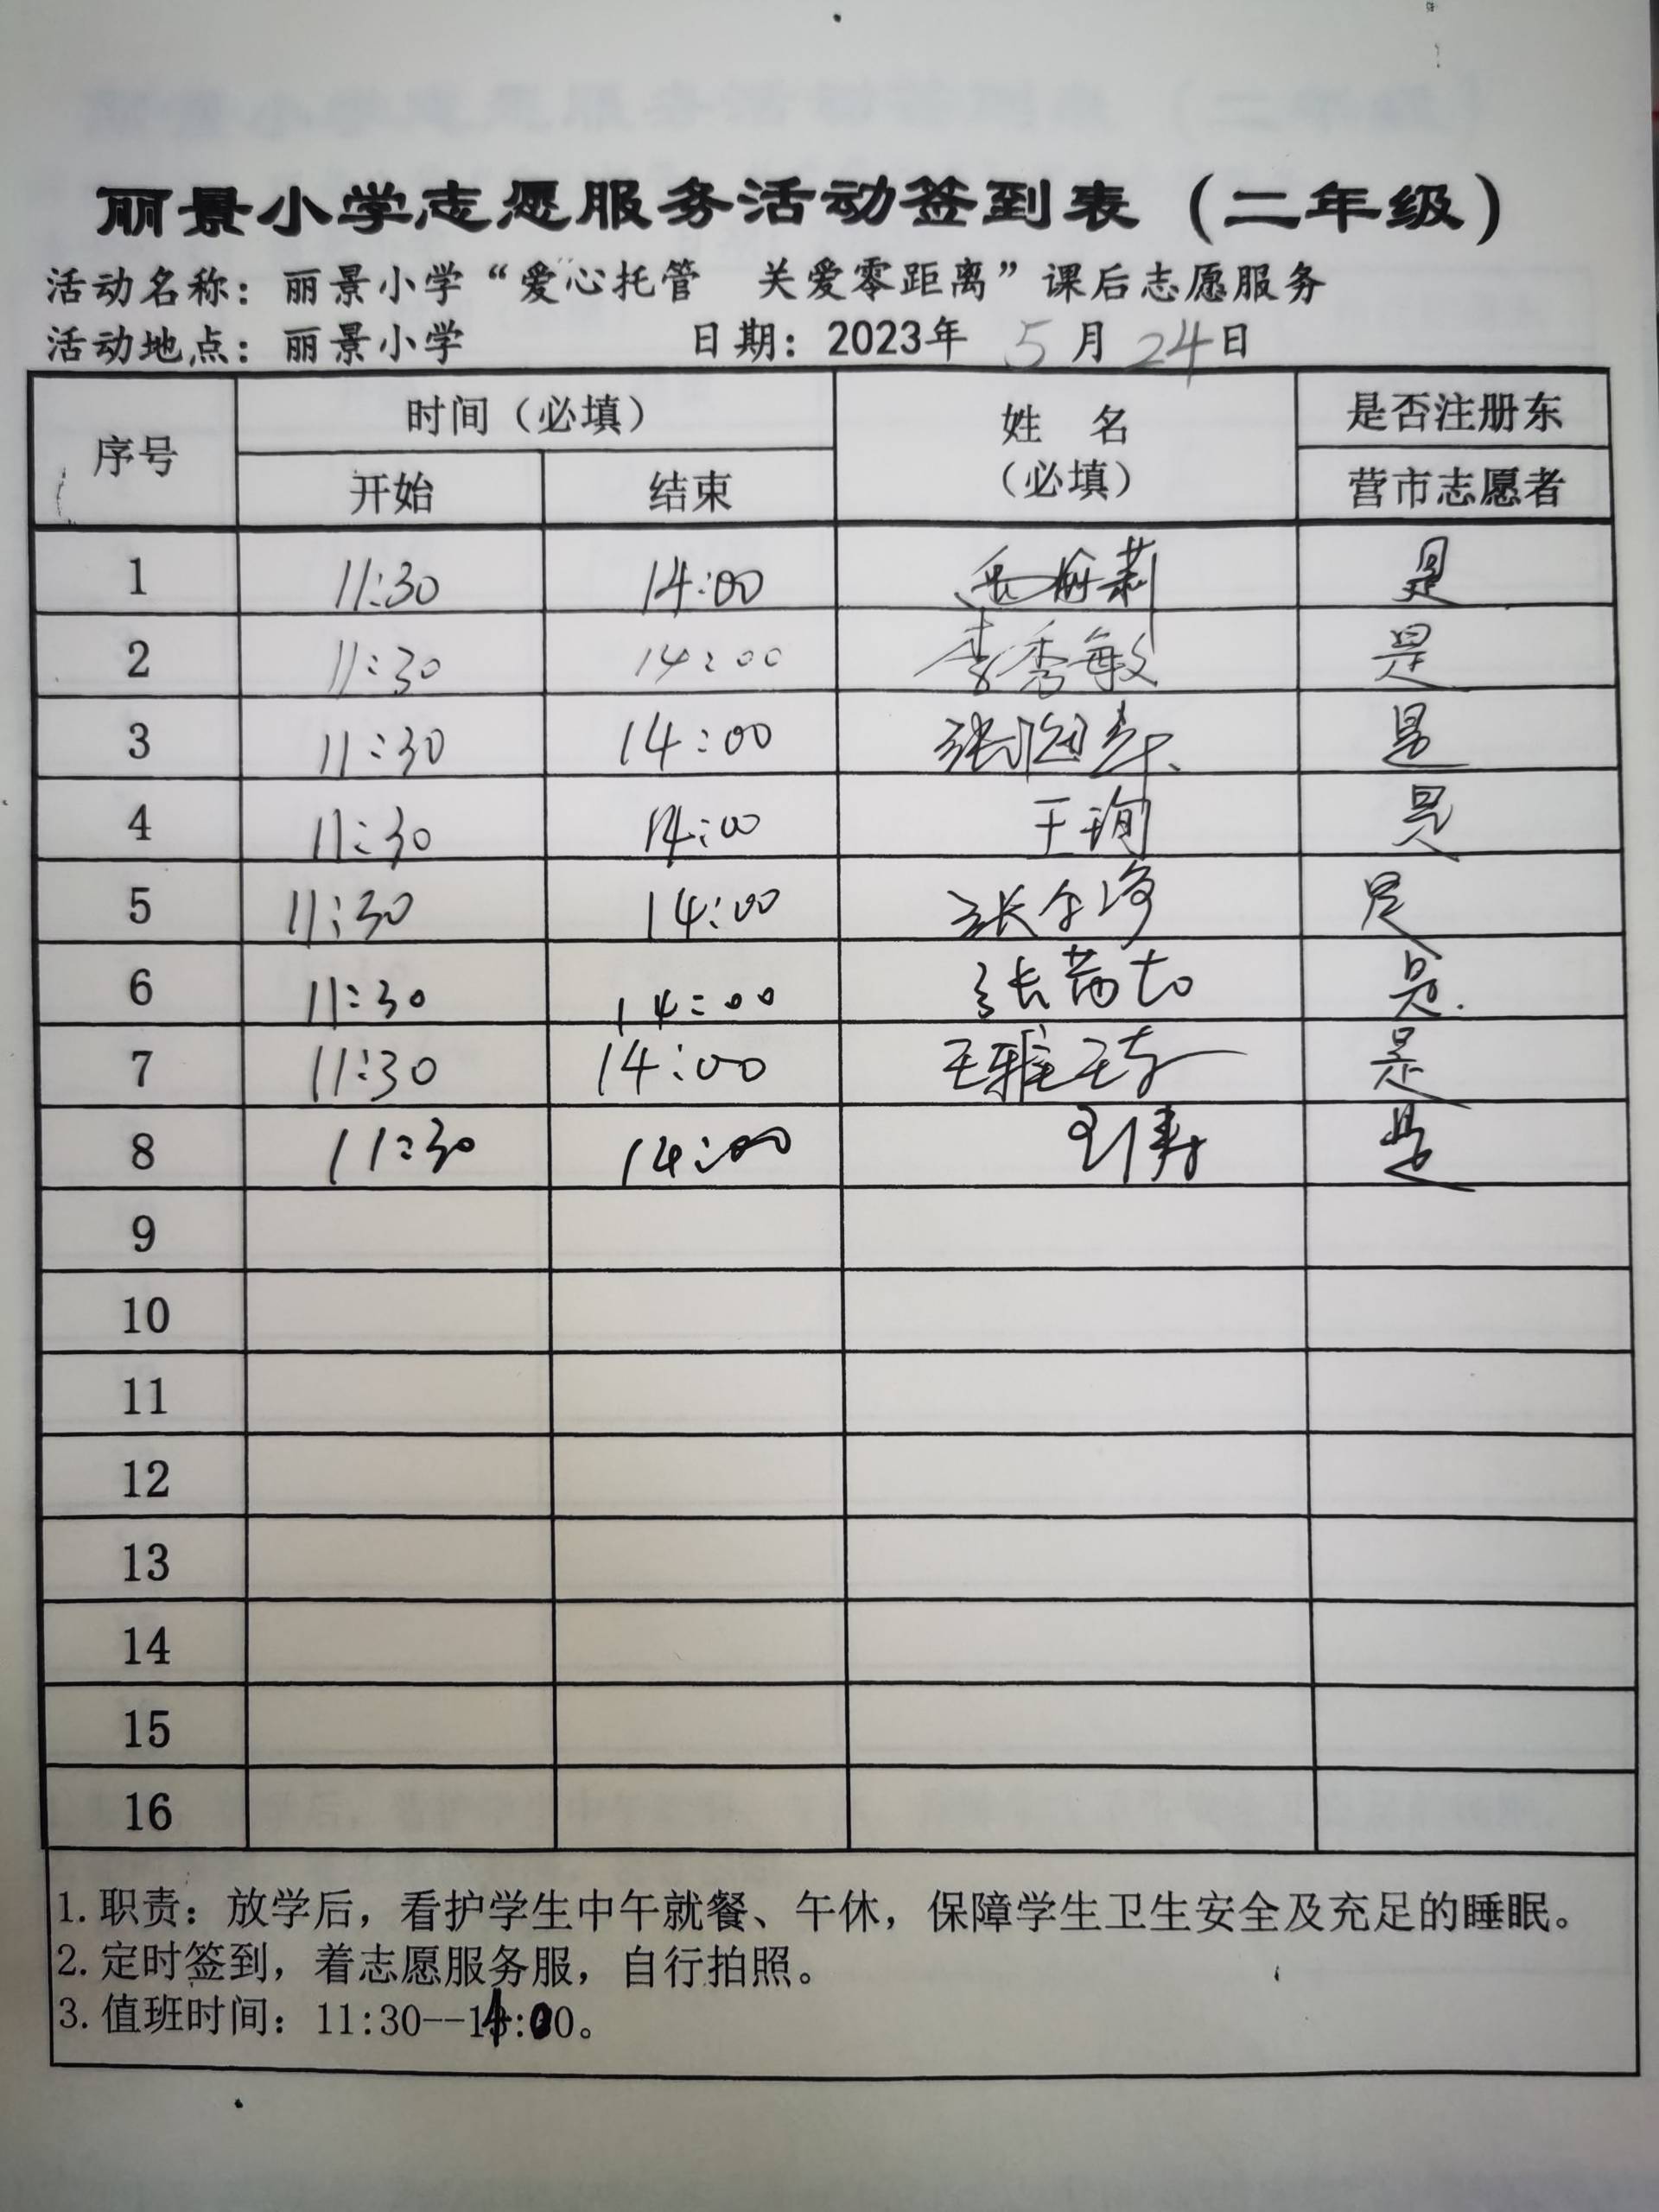 丽景小学志愿服务活动签到表（二年级）
活动名称：丽景小学“爱心托管　关爱零距离”课后志愿服务
活动地点：丽景小学　日期：2023年 5 月 24 日
序号　时间（必填）　姓　名（必填）　是否注册东
开始　结束　营市志愿者
1　11:30　14:00　是
2　11:30　14:00　李秀敏　是
3　11:30　14:00　张　是
4　11:30　14:00　王珣　是
5　11:30　14:00　张　是
6　11:30　14:00　张　是.
7　11:30　14:00　王雅　是
8　11:30　14:00　是
9
10
11
12
13
14
15
16
1.职责：放学后，看护学生中午就餐、午休，保障学生卫生安全及充足的睡眠。
2.定时签到，着志愿服务服，自行拍照。
3.值班时间：11:30--14:00。